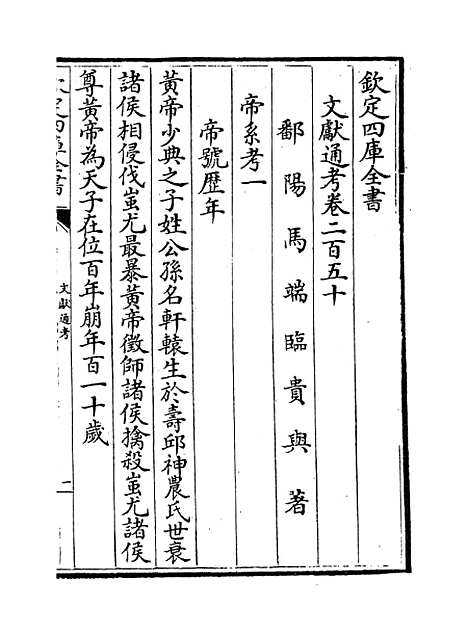 欽定四庫全書
文獻通考卷二百五十
鄱陽馬端臨貴與著
帝系考一
帝號歴年
黃帝少典之子姓公孫名軒轅生於壽邱神農氏世衰
諸侯相侵伐蚩尤最暴黃帝徵師諸侯擒殺蚩尤諸侯
尊黃帝為天子在位百年崩年百一十歲
欽定四庫全書
文獻通考
二